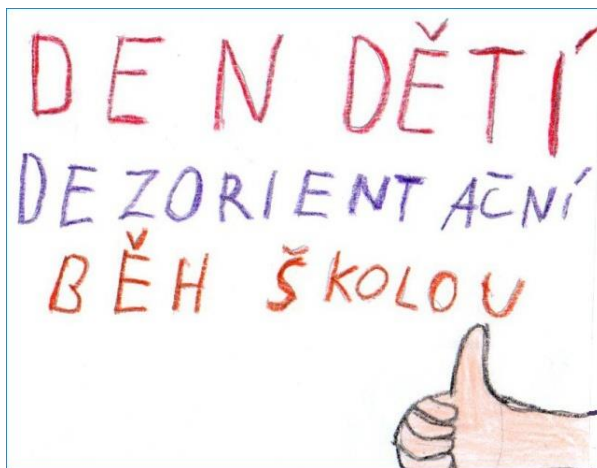 DEN DĚTÍ
DEZORIENTAČNÍ
BĚH ŠKOLOU